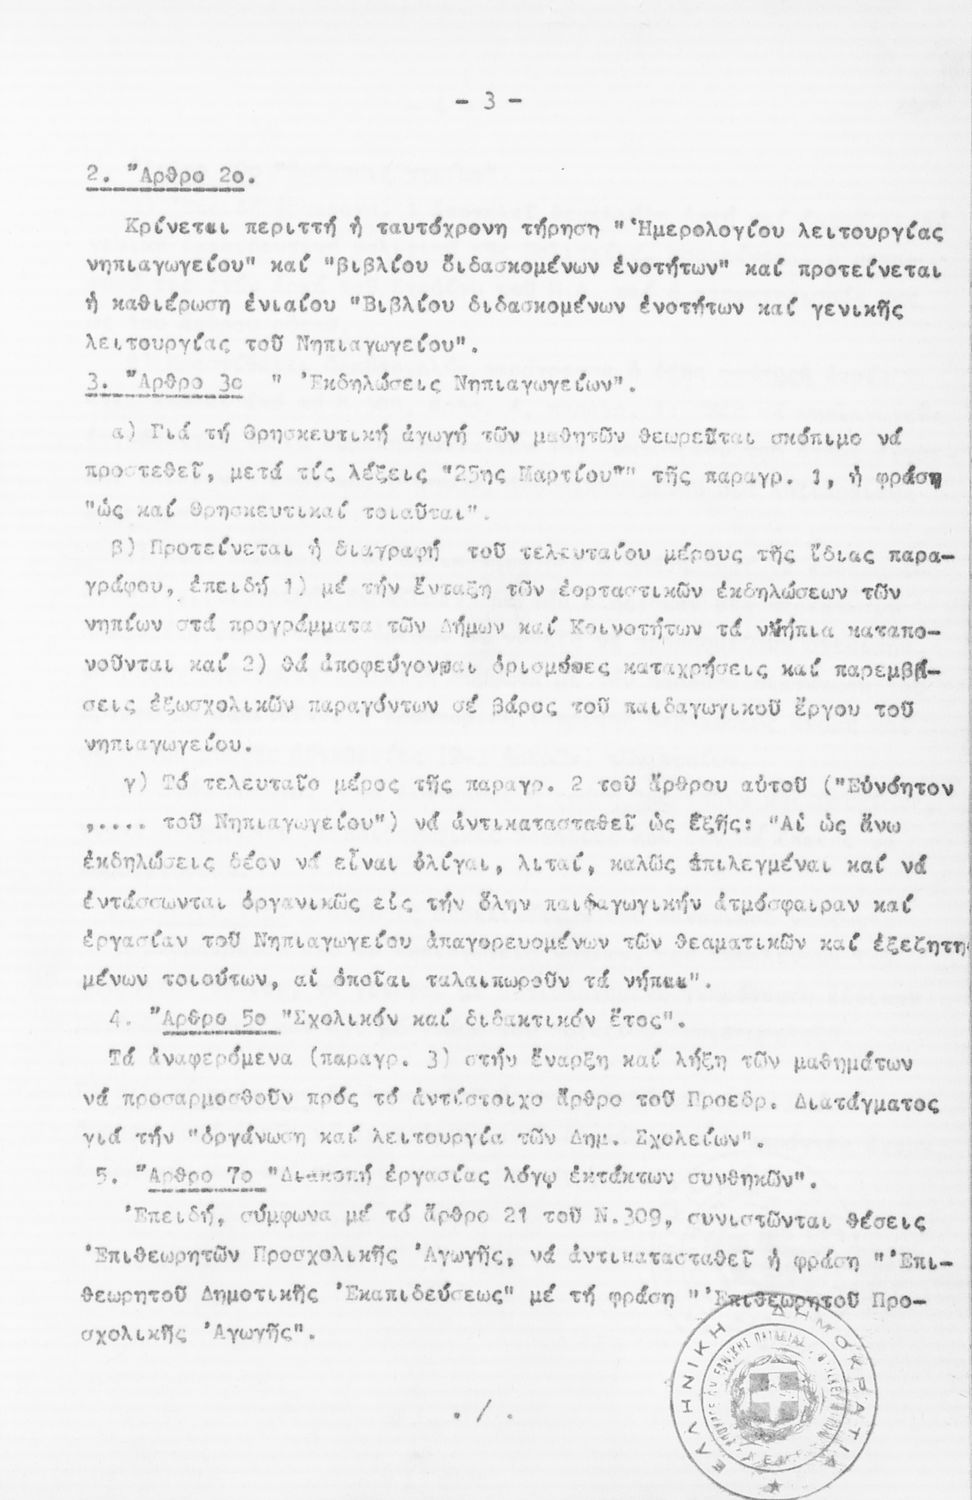 - 3 -
2. Ἄρθρο 2ο.
Κρίνεται περιττή ἡ ταυτόχρονη τήρηση "Ἡμερολογίου λειτουργίας
νηπιαγωγείου" καί "βιβλίου διδασκομένων ἑνοτήτων" καί προτείνεται
ἡ καθιέρωση ἑνιαίου "Βιβλίου διδασκομένων ἑνοτήτων καί γενικῆς
λειτουργίας τοῦ Νηπιαγωγείου".
3. Ἄρθρο 3ο " Ἐκδηλώσεις Νηπιαγωγείων".
α) Γιά τή Θρησκευτική ἀγωγή τῶν μαθητῶν θεωρεῖται σκόπιμο νά
προστεθεῖ, μετά τίς λέξεις "25ης Μαρτίου"" τῆς παραγρ. 1, ἡ φράση
"ὡς καί Θρησκευτικαί τοιαῦται".
β) Προτείνεται ἡ διαγραφή τοῦ τελευταίου μέρους τῆς ἴδιας παρα-
γράφου, ἐπειδή 1) μέ τήν ἔνταξη τῶν ἑορταστικῶν ἐκδηλώσεων τῶν
νηπίων στά προγράμματα τῶν Δήμων καί Κοινοτήτων τά νήπια καταπο-
νοῦνται καί 2) θά ἀποφεύγονται ὁρισμένες καταχρήσεις καί παρεμβά-
σεις ἐξωσχολικῶν παραγόντων σέ βάρος τοῦ παιδαγωγικοῦ ἔργου τοῦ
νηπιαγωγείου.
γ) Τό τελευταῖο μέρος τῆς παραγρ. 2 τοῦ ἄρθρου αὐτοῦ ("Εὐνόητον
,.... τοῦ Νηπιαγωγείου") νά ἀντικατασταθεῖ ὡς ἑξῆς: "Αἱ ὡς ἄνω
ἐκδηλώσεις δέον νά εἶναι ὀλίγαι, λιταί, καλῶς ἐπιλεγμέναι καί νά
ἐντάσσωνται ὀργανικῶς είς τήν ὅλην παιδαγωγικήν ἀτμόσφαιραν καί
ἐργασίαν τοῦ Νηπιαγωγείου ἀπαγορευομένων τῶν θεαματικῶν καί ἐξεζητη-
μένων τοιούτων, αἱ ὁποῖαι ταλαιπωροῦν τά νήπια".
4. Ἄρθρο 5ο "Σχολικόν καί διδακτικόν ἔτος".
Τά ἀναφερόμενα (παραγρ. 3) στήν ἔναρξη καί λήξη τῶν μαθημάτων
νά προσαρμοσθοῦν πρός τό ἀντίστοιχο ἄρθρο τοῦ Προεδρ. Διατάγματος
γιά τήν "ὀργάνωση καί λειτουργία τῶν Δημ. Σχολείων".
5. Ἄρθρο 7ο "Διακοπή ἐργασίας λόγῳ ἐκτάκτων συνθηκῶν".
Ἐπειδή, σύμφωνα μέ τό ἄρθρο 21 τοῦ Ν.309, συνιστῶνται θέσεις
Ἐπιθεωρητῶν Προσχολικῆς Ἀγωγῆς, νά ἀντικατασταθεῖ ἡ φράση "Ἐπι-
θεωρητοῦ Δημοτικῆς Ἐκαπιδεύσεως" μέ τή φράση "Ἐπιθεωρητοῦ Προ-
σχολικῆς Ἀγωγῆς".
. / .
ΕΛΛΗΝΙΚΗ ΔΗΜΟΚΡΑΤΙΑ